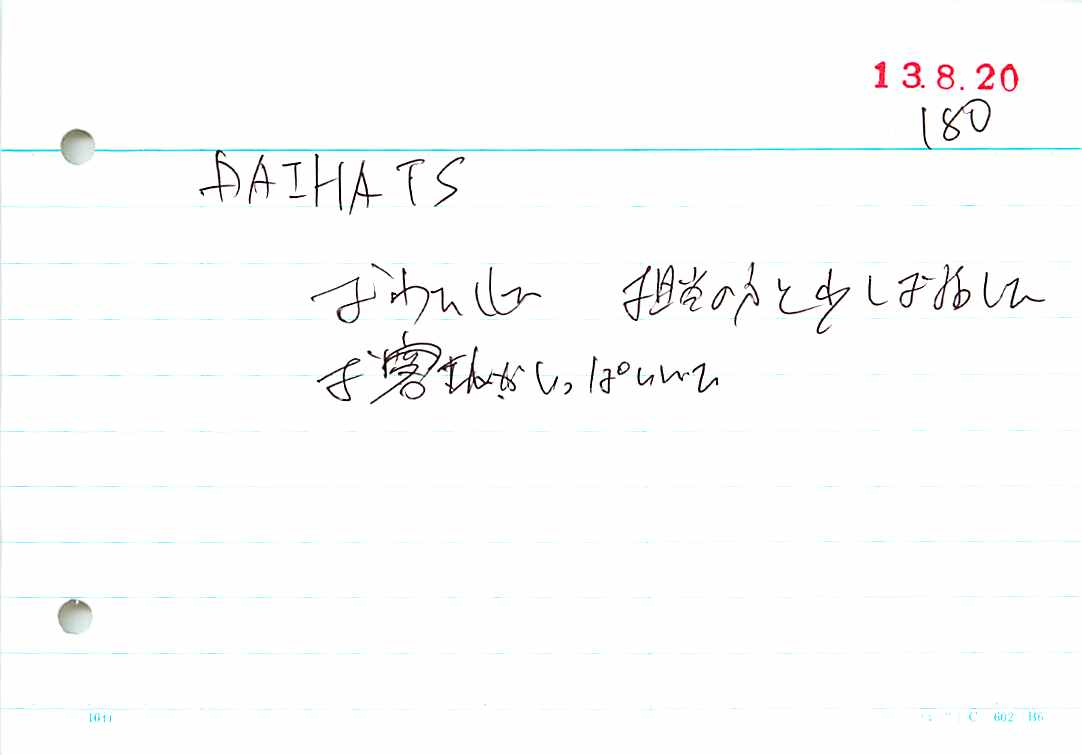 13.8.20
180
DAIHATS
担当の方と少しお話した
お客さんがいっぱいいた
C 602 B6